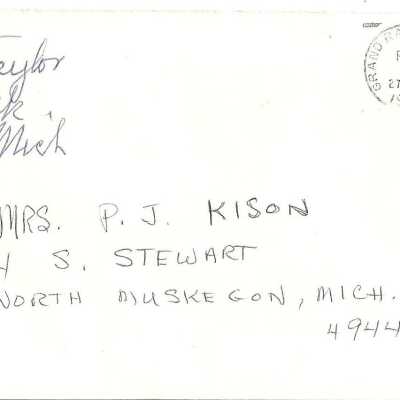 Taylor
Mich
GRAND RA
27
MRS. P. J. KISON
S. STEWART
NORTH MUSKEGON, MICH.
4944